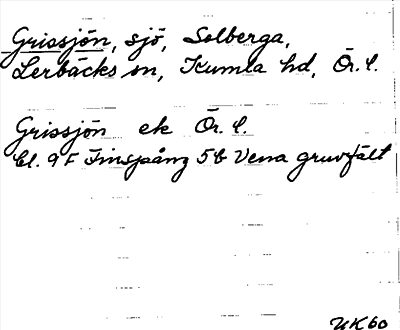 Grissjön, sjö, Solberga,
Lerbäcks sn, Kumla hd, Ör. l.
Grissjön ek Ör. l.
bl. 9 F Finspång 5 b Vena gruvfält
UK 60